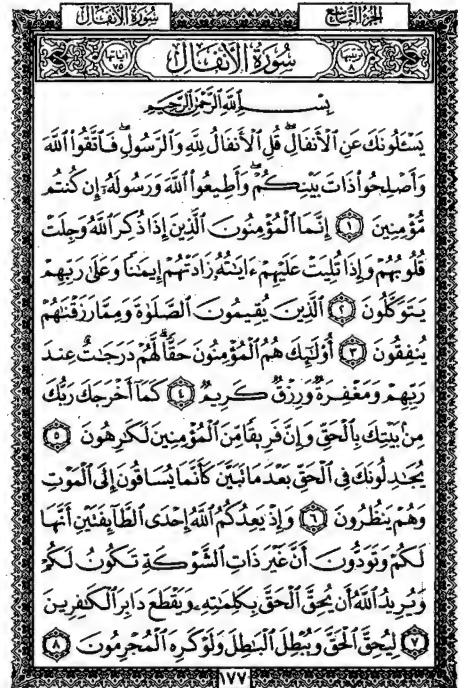 الجزء التاسع
سورة الأنفال
ترتيبها ٨
سُورَةُ الأَنفَالِ
آياتها ٧٥
بِسْمِ اللَّهِ الرَّحْمَٰنِ الرَّحِيمِ
يَسْـَٔلُونَكَ عَنِ ٱلْأَنفَالِۖ قُلِ ٱلْأَنفَالُ لِلَّهِ وَٱلرَّسُولِۖ فَٱتَّقُوا۟ ٱللَّهَ
وَأَصْلِحُوا۟ ذَاتَ بَيْنِكُمْۖ وَأَطِيعُوا۟ ٱللَّهَ وَرَسُولَهُۥٓ إِن كُنتُم
مُّؤْمِنِينَ ١ إِنَّمَا ٱلْمُؤْمِنُونَ ٱلَّذِينَ إِذَا ذُكِرَ ٱللَّهُ وَجِلَتْ
قُلُوبُهُمْ وَإِذَا تُلِيَتْ عَلَيْهِمْ ءَايَٰتُهُۥ زَادَتْهُمْ إِيمَٰنًا وَعَلَىٰ رَبِّهِمْ
يَتَوَكَّلُونَ ٢ ٱلَّذِينَ يُقِيمُونَ ٱلصَّلَوٰةَ وَمِمَّا رَزَقْنَٰهُمْ
يُنفِقُونَ ٣ أُو۟لَٰٓئِكَ هُمُ ٱلْمُؤْمِنُونَ حَقًّاۚ لَّهُمْ دَرَجَٰتٌ عِندَ
رَبِّهِمْ وَمَغْفِرَةٌ وَرِزْقٌ كَرِيمٌ ٤ كَمَآ أَخْرَجَكَ رَبُّكَ
مِنۢ بَيْتِكَ بِٱلْحَقِّ وَإِنَّ فَرِيقًا مِّنَ ٱلْمُؤْمِنِينَ لَكَٰرِهُونَ ٥
يُجَٰدِلُونَكَ فِى ٱلْحَقِّ بَعْدَ مَا تَبَيَّنَ كَأَنَّمَا يُسَاقُونَ إِلَى ٱلْمَوْتِ
وَهُمْ يَنظُرُونَ ٦ وَإِذْ يَعِدُكُمُ ٱللَّهُ إِحْدَى ٱلطَّآئِفَتَيْنِ أَنَّهَا
لَكُمْ وَتَوَدُّونَ أَنَّ غَيْرَ ذَاتِ ٱلشَّوْكَةِ تَكُونُ لَكُمْ
وَيُرِيدُ ٱللَّهُ أَن يُحِقَّ ٱلْحَقَّ بِكَلِمَٰتِهِۦ وَيَقْطَعَ دَابِرَ ٱلْكَٰفِرِينَ
٧ لِيُحِقَّ ٱلْحَقَّ وَيُبْطِلَ ٱلْبَٰطِلَ وَلَوْ كَرِهَ ٱلْمُجْرِمُونَ ٨
١٧٧